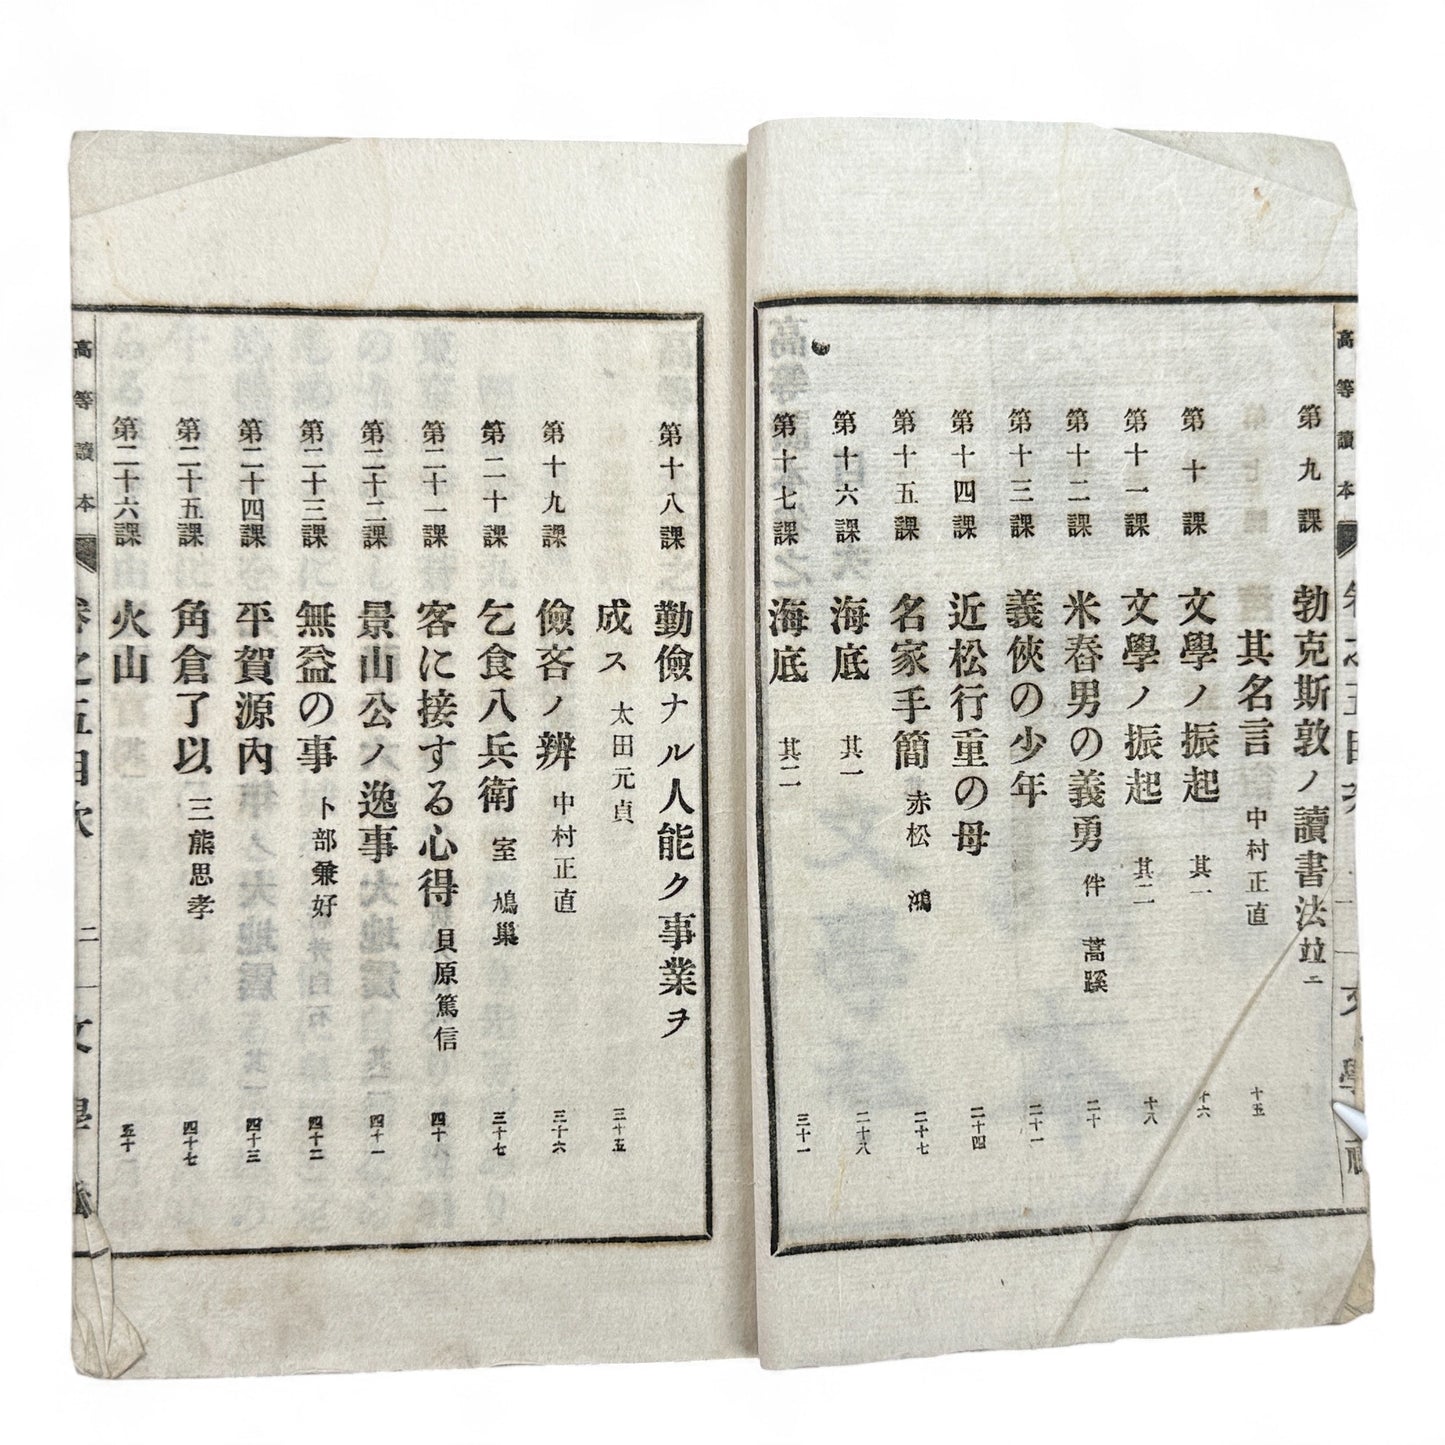 高等讀本
第九課 勃克斯敦ノ讀書法竝ニ
其名言 中村正直 十五
第十課 文學ノ振起 其一 十六
第十一課 文學ノ振起 其二 十八
第十二課 米舂男の義勇 伴蒿蹊 二十
第十三課 義俠の少年 二十一
第十四課 近松行重の母 二十四
第十五課 名家手簡 赤松鴻 二十七
第十六課 海底 其一 二十八
第十七課 海底 其二 三十一
第十八課 勤儉ナル人能ク事業ヲ
成ス 太田元貞 三十五
第十九課 儉吝ノ辨 中村正直 三十六
第二十課 乞食八兵衛 室鳩巢 三十七
第二十一課 客に接する心得 貝原篤信 四十
第二十二課 景山公ノ逸事 四十一
第二十三課 無益の事 卜部兼好 四十二
第二十四課 平賀源內 四十三
第二十五課 角倉了以 三熊思孝 四十七
第二十六課 火山 五十
高等讀本 卷之五目次 二 文學